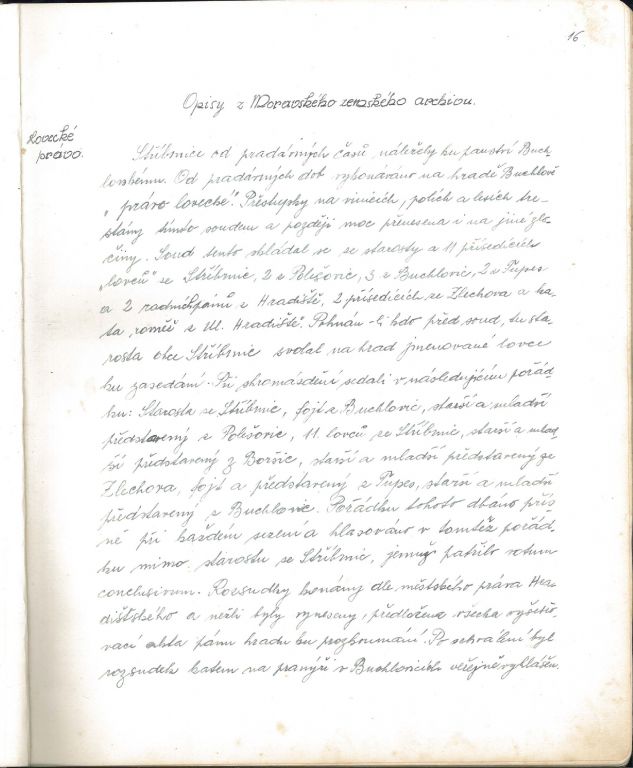 16
Opisy z Moravského zemského archivu.
Lovecké
právo.
Stříbrnice od pradávných časů náležely ku panství Buch-
lovskému. Od pradávných dob vykonáváno na hradě Buchlově
"právo lovecké". Přestupky na vinicích, polích a lesích tre-
stány tímto soudem a později moc přenesena i na jiné zlo-
činy. Soud tento skládal se ze starosty a 11 přísedících
"lovců" ze Stříbrnic, 2 z Polešovic, 3 z Buchlovic, 2 z Tupes
a 2 radních pánů z Hradiště, 2 přísedících ze Zlechova a ka-
ta, rovněž z Uh. Hradiště. Pohnán-li kdo před soud, tu sta-
rosta obce Stříbrnic svolal na hrad jmenované lovce
ku zasedání. Při shromáždění sedali v následujícím pořád-
ku: Starosta ze Stříbrnic, fojt z Buchlovic, starší a mladší
představený z Polešovic, 11 lovců ze Stříbrnic, starší a mlad-
ší představený z Boršic, starší a mladší představený ze
Zlechova, fojt a představený z Tupes, starší a mladší
představený z Buchlovic. Pořádku tohoto dbáno přís
ně při každém sezení a hlasováno v tomtéž pořád-
ku mimo starostu ze Stříbrnic, jemuž patřilo votum
conclusivum. Rozsudky konány dle městského práva Hra-
dišťského a nežli byly vyneseny, předložena všecka vyšetřo-
vací akta pánu hradu ku prozkoumání. Po schválení byl
rozsudek katem na pranýři v Buchlovicích veřejně vyhlášen.